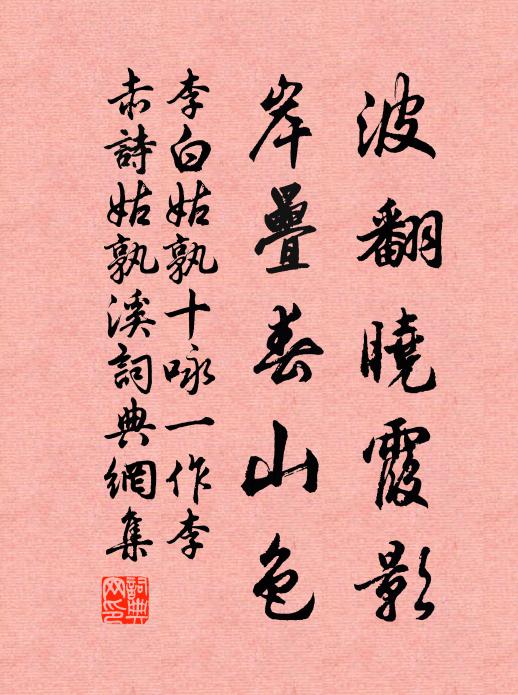 波翻曉霞影
岸疊春山色
李白姑孰十咏一作李
赤詩姑孰溪詞典網集
詞典網印